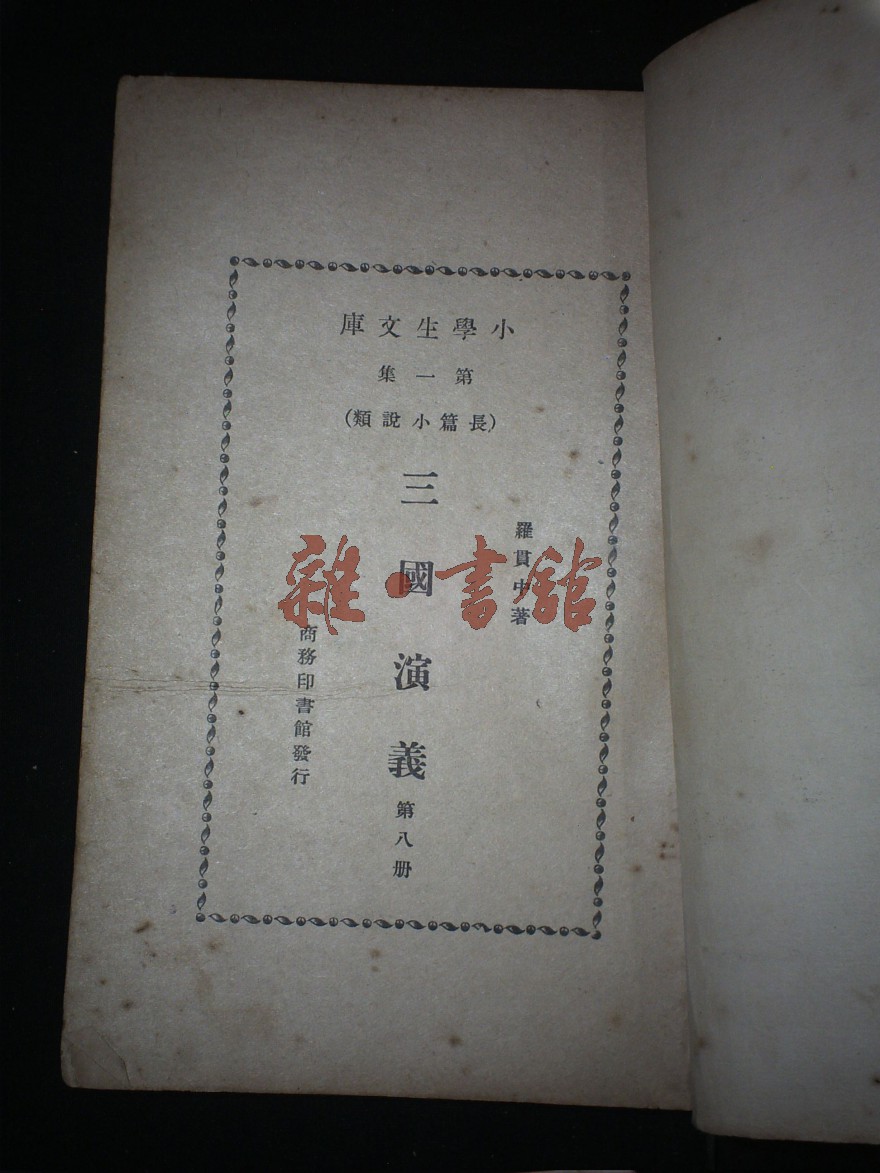 小學生文庫
第一集
(長篇小說類)
羅貫中著
三國演義
第八册
商務印書館發行
雜·書館